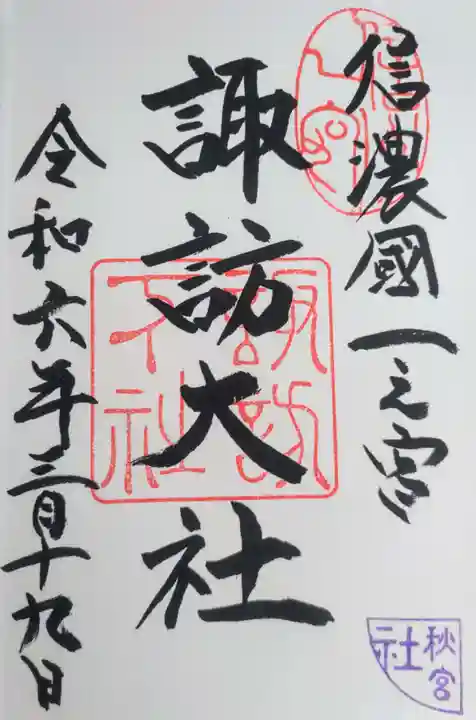 信濃國一之宮
諏訪大社
令和六年三月十九日
諏訪
下社
秋宮
社